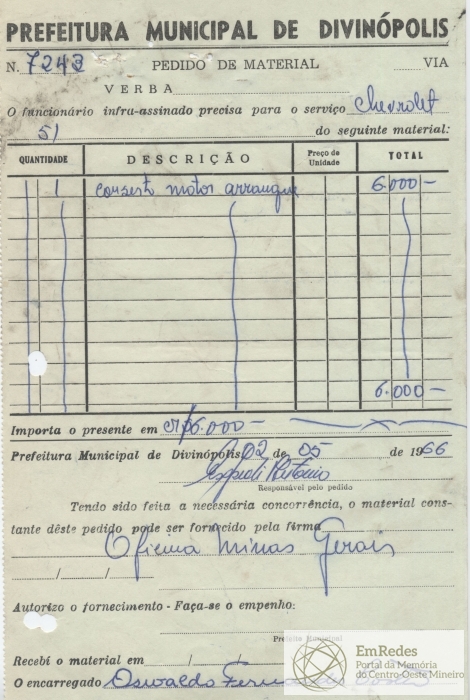 PREFEITURA MUNICIPAL DE DIVINÓPOLIS
N. 7243 PEDIDO DE MATERIAL VIA
VERBA
O funcionário infra-assinado precisa para o serviço Chevrolet
51 do seguinte material:
QUANTIDADE DESCRIÇÃO Preço de Unidade TOTAL
1 consert motor arranque 6.000-
6.000-
Importa o presente em Cr$6.000-
Prefeitura Municipal de Divinópolis, 02 de 05 de 1966
Antonio
Responsável pelo pedido
Tendo sido feita a necessária concorrência, o material cons-
tante dêste pedido pode ser fornecido pela firma
Oficina Minas Gerais
/ /
Autorizo o fornecimento - Faça-se o empenho:
Prefeito Municipal
Recebí o material em / /
O encarregado Oswaldo
EmRedes
Portal da Memória
do Centro-Oeste Mineiro